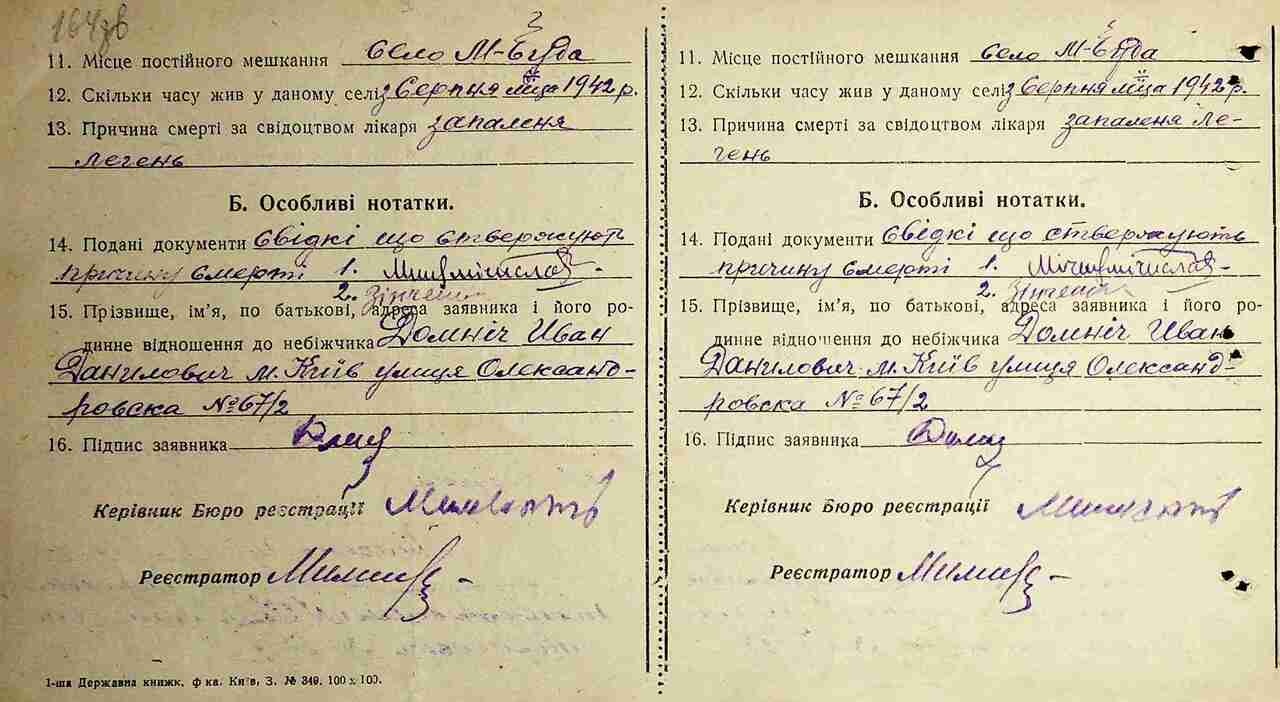 164зв
11. Місце постійного мешкання село М-Буда
12. Скільки часу жив у даному селі з Серпня м-ца 1942 р.
13. Причина смерті за свідоцтвом лікаря запаленя
легень
Б. Особливі нотатки.
14. Подані документи Свідкі що ствержують
причину смерті 1.
2. Зінченко
15. Прізвище, ім'я, по батькові, адреса заявника і його ро-
динне відношення до небіжчика Домніч Иван
Данилович м. Київ улиця Олександ-
ровска № 67/2
16. Підпис заявника
Керівник Бюро реєстрації
Реєстратор
1-ша Державна книжк. ф-ка. Київ, З. № 349. 100 х 100.
11. Місце постійного мешкання село М-Буда
12. Скільки часу жив у даному селі з Серпня м-ца 1942 р.
13. Причина смерті за свідоцтвом лікаря запаленя ле-
гень
Б. Особливі нотатки.
14. Подані документи Свідкі що ствержують
причину смерті 1.
2. Зінченко
15. Прізвище, ім'я, по батькові, адреса заявника і його ро-
динне відношення до небіжчика Домніч Иван
Данилович м. Київ улиця Олександ-
ровска № 67/2
16. Підпис заявника
Керівник Бюро реєстрації
Реєстратор